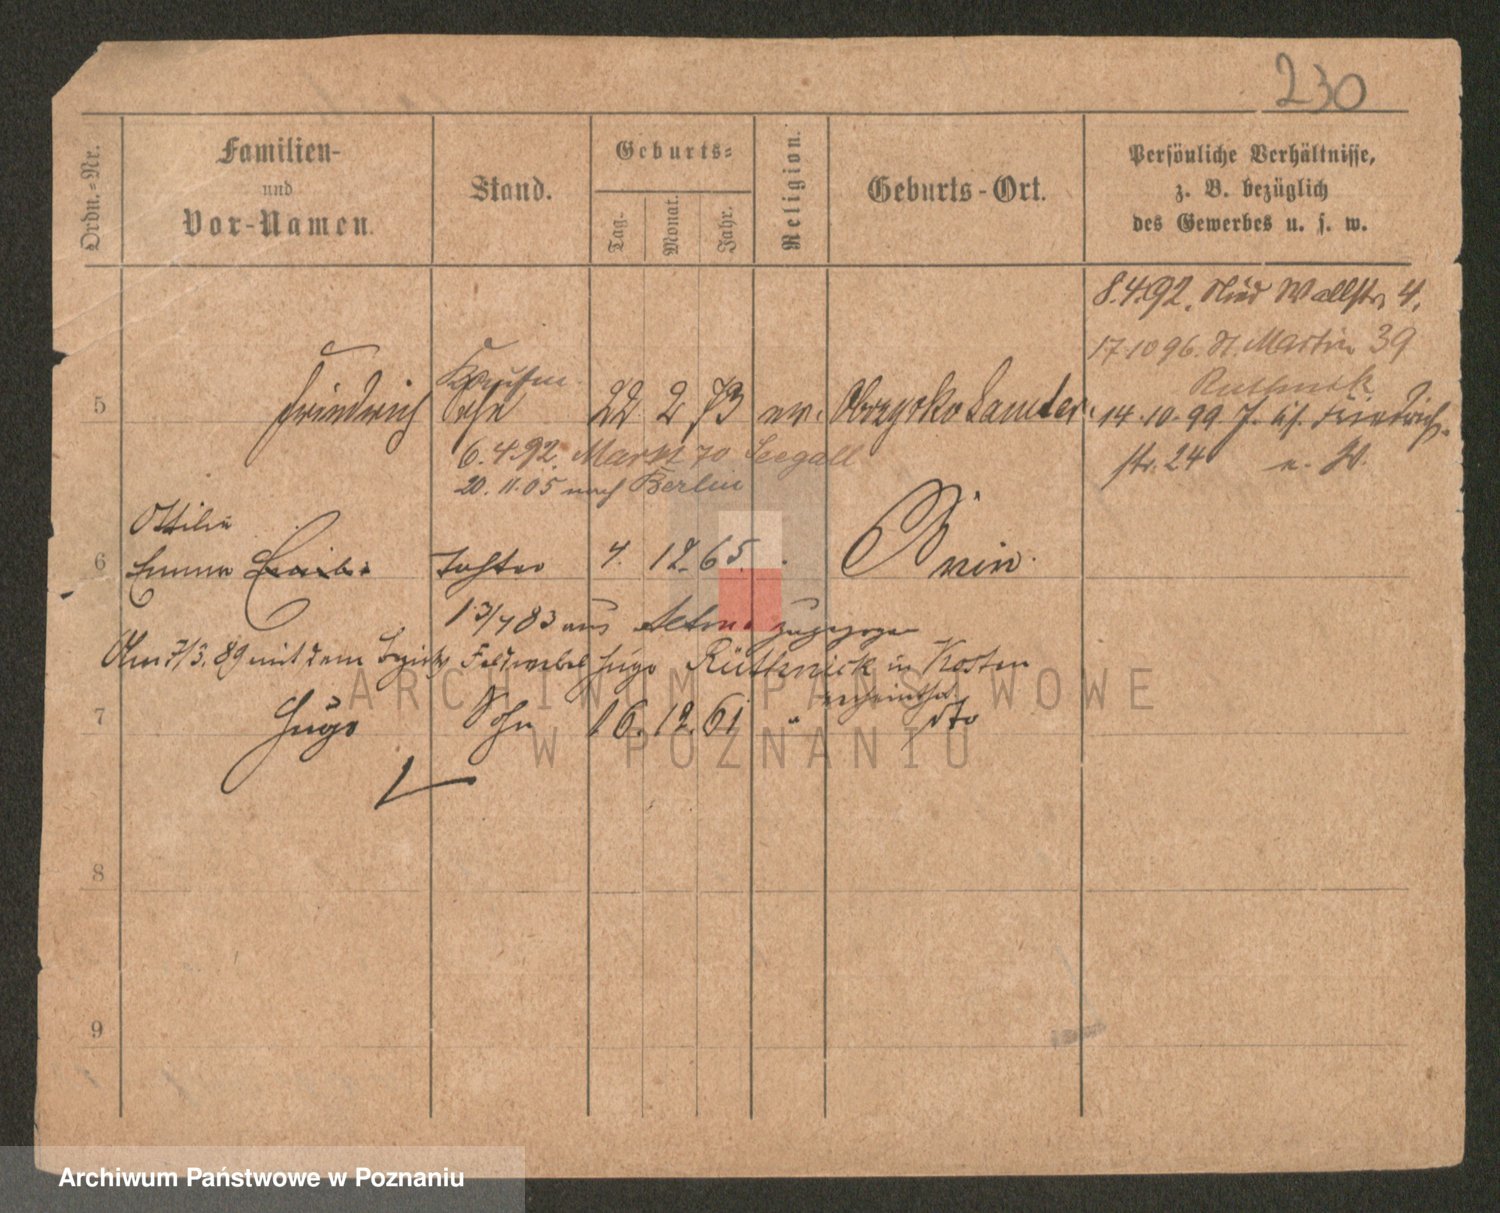 230
Ordn.-Nr.
Familien-
und
Vor-Namen.
Stand.
Geburts-
Tag.
Monat.
Jahr.
Religion.
Geburts-Ort.
Persönliche Verhältnisse,
z. B. bezüglich
des Gewerbes u. s. w.
8.4.92. Wallstr. 4.
17.10 96. St. Martin 39
Ruthnick
5 Friedrich Kaufm. Sohn 22 2 73 ev. Obrzycko Samter
14.10.99 Friedrich-
str. 24
6.4.92. Markt 70 Seegall
20.11.05 nach Berlin
Ottilie
6 Emma Tochter 4. 12. 65. Znin.
13/7 83 aus zugezogen
Am 7/3. 89 mit dem Feldwebel Hugo Rüthnick in Kosten
verheirathet
7 Hugo Sohn 16. 12. 61 " dto
8
9
ARCHIWUM PAŃSTWOWE
W POZNANIU
Archiwum Państwowe w Poznaniu